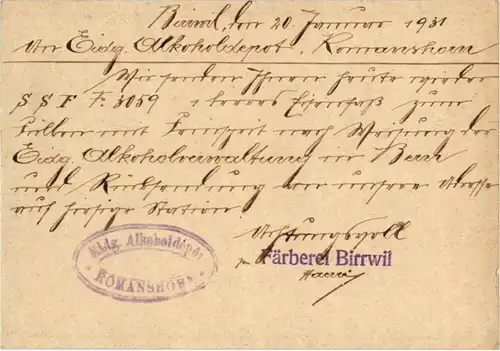 Birrwil, den 20. Januar 1931
An Eidg. Alkoholdepot, Romanshorn
Wir senden Ihnen heute wieder
S S F F. 3059 1 leeres Eisenfaß zum
Füllen mit Feinsprit nach Weisung der
Eidg. Alkoholverwaltung in Bern
und Rücksendung an unsere Adresse
auf hiesige Station
Achtungsvoll
Färberei Birrwil
Eidg. Alkoholdépôt
ROMANSHORN